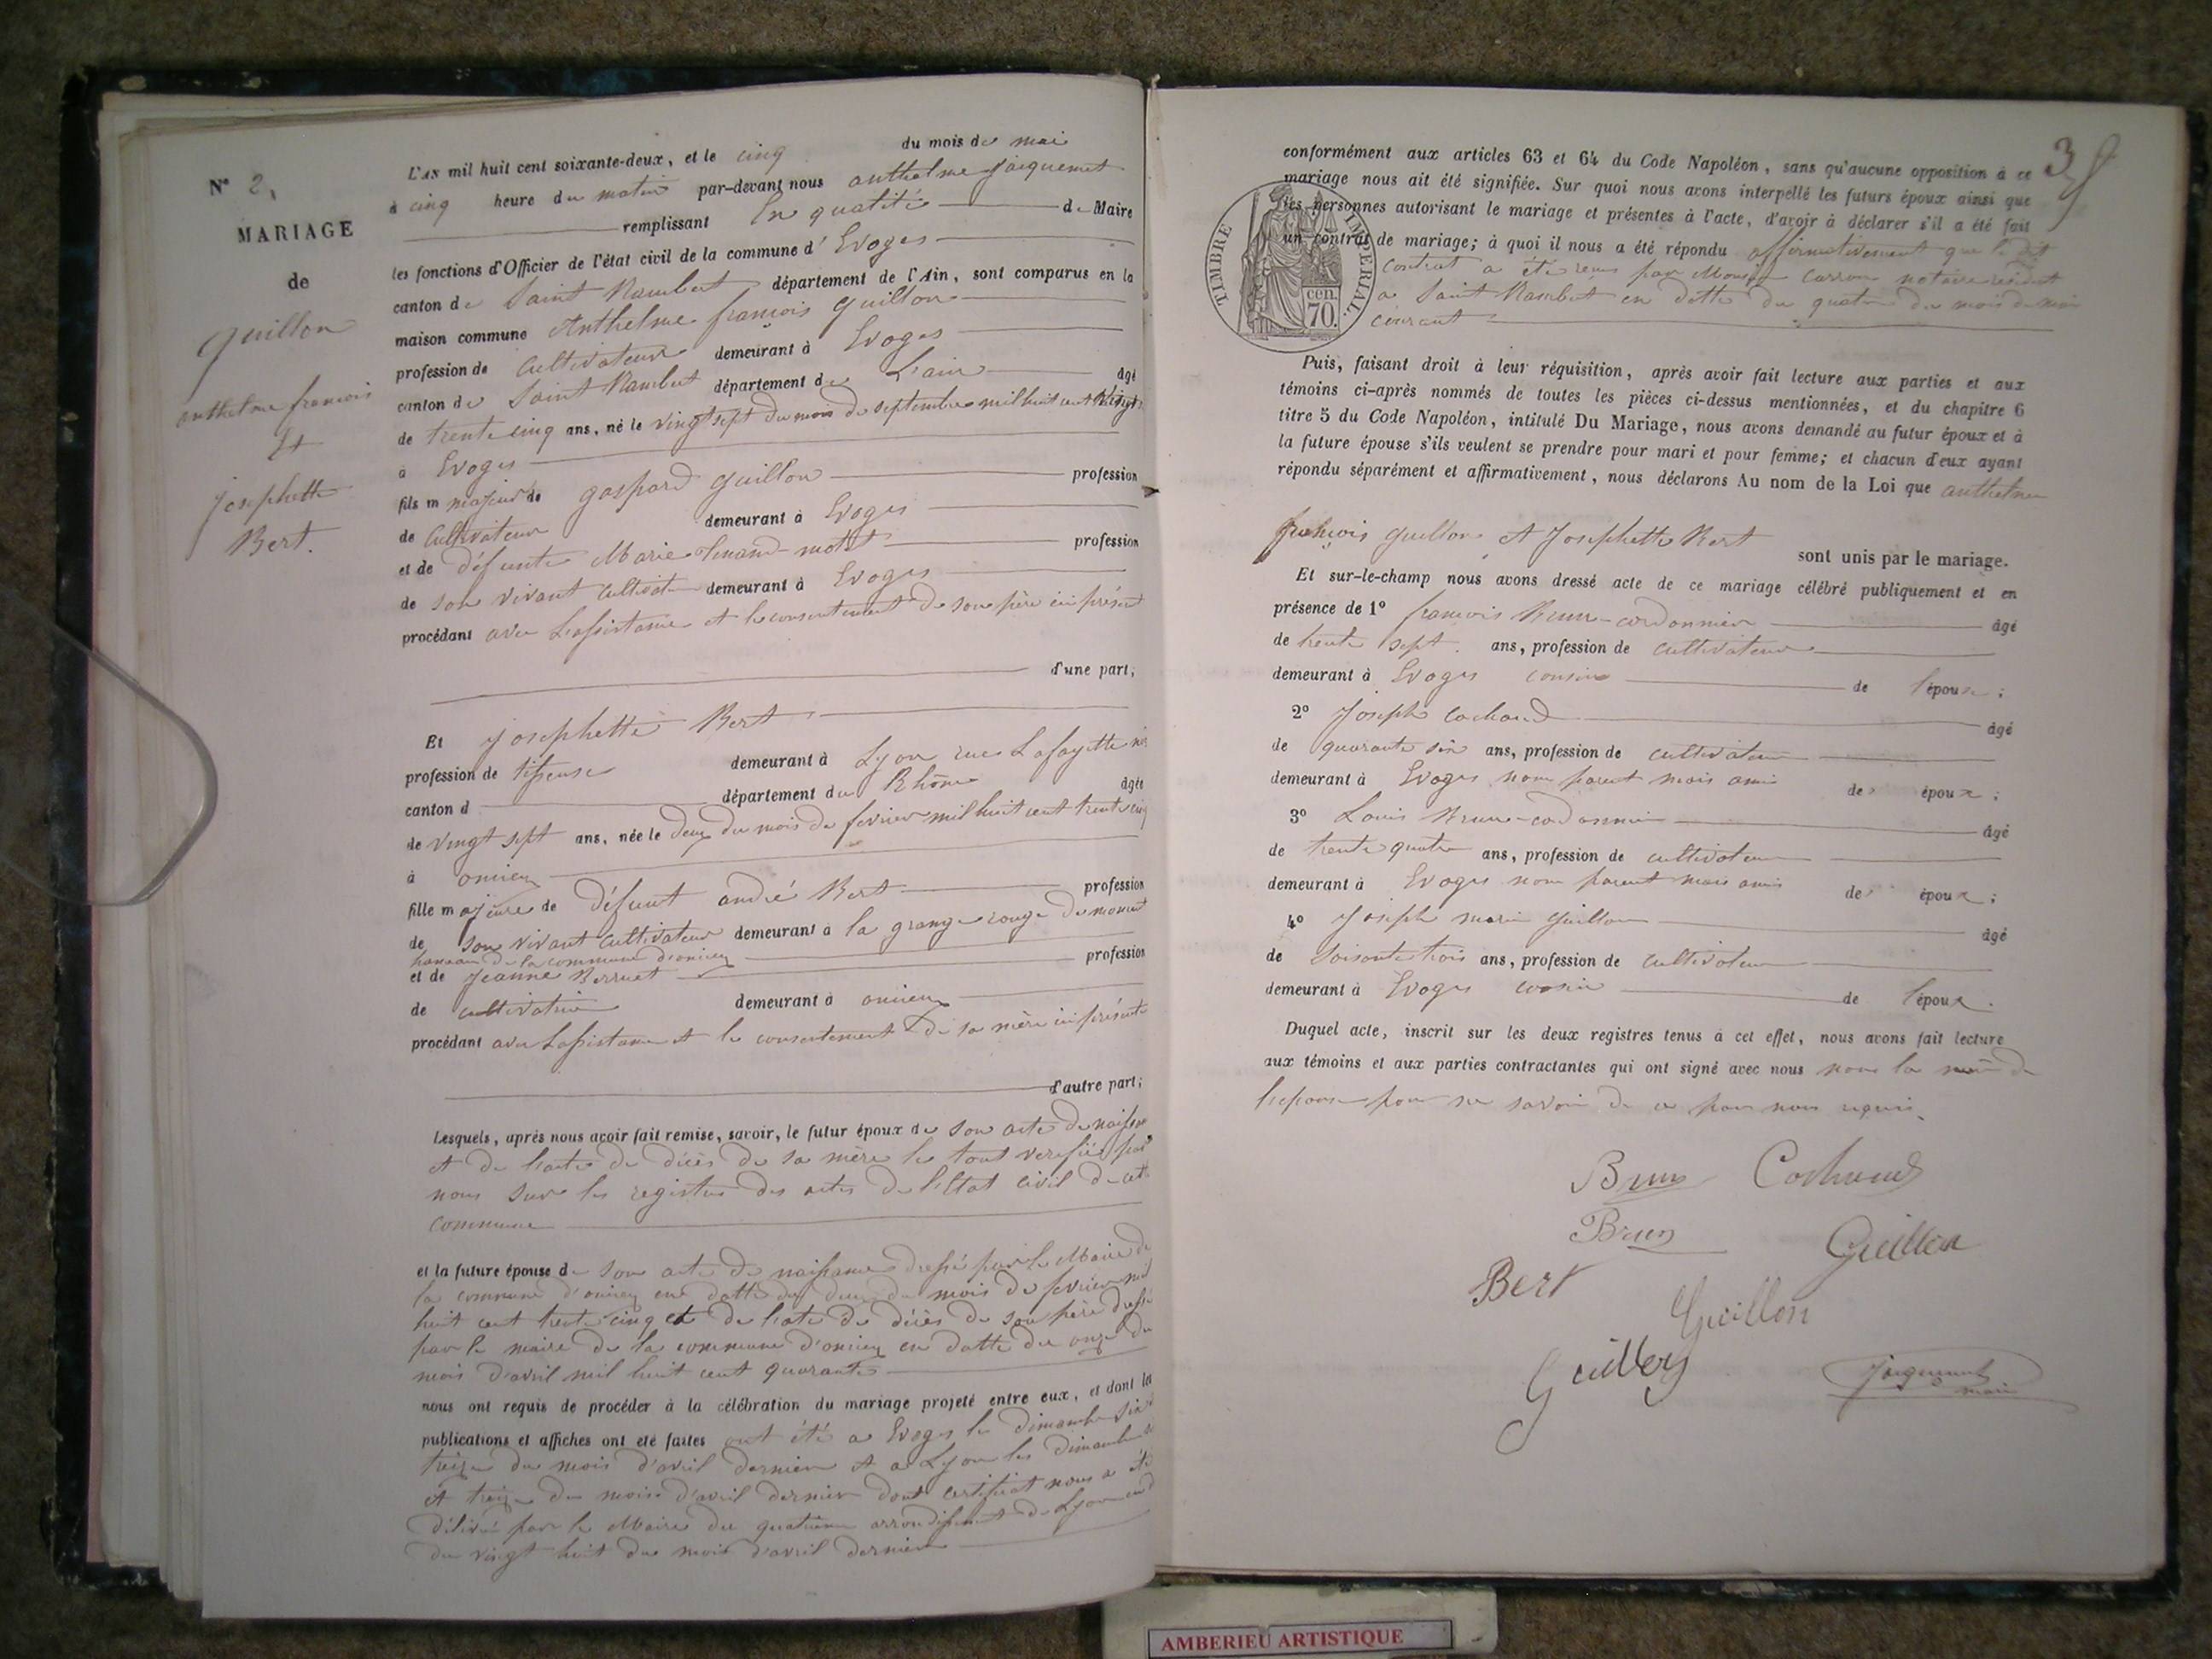 N° 2,
MARIAGE
de
Guillon
anthelme françois
Et
Josephette
Bert.
L'AN mil huit cent soixante-deux, et le cinq du mois de mai
à cinq heure du matin par-devant nous anthelme Jacquemet
remplissant En qualité de Maire
les fonctions d'Officier de l'état civil de la commune d' Evoges
canton de Saint Rambert département de l'Ain, sont comparus en la
maison commune Anthelme françois Guillon
profession de cultivateur demeurant à Evoges
canton de Saint Rambert département de L'ain âgé
de trente cinq ans, né le vingt sept du mois de septembre mil huit cent vingt
à Evoges
fils majeur de gaspard Guillon profession
de Cultivateur demeurant à Evoges
et de défunte Marie profession
de son vivant cultivat demeurant à Evoges
procédant avec L'assistance et le consentement de son père ici présent
d'une part,
Et Josephette Bert
profession de tisseuse demeurant à Lyon rue Lafayette
canton d département du Rhône âgée
de vingt sept ans, née le deux du mois de fevrier mil huit cent trente cinq
à oncieu
fille majeure de défunt andré Bert profession
de son vivant cultivateur demeurant à la grange rouge
hameau de la commune d'oncieu
et de Jeanne profession
de cultivatrice demeurant à oncieu
procédant avec Lassistance et le consentement de sa mère ici présente
d'autre part;
Lesquels, après nous avoir fait remise, savoir, le futur époux de son acte de naissance
et de l'acte de décès de sa mère le tout verifié par
nous sur les registres des actes de l'Etat civil de cette
commune
et la future épouse de son acte de naissance dressé par le Maire de
la commune d'oncieu en datte du deux du mois de fevrier mil
huit cent trente cinq et de l'acte de décès de son père dressé
par le maire de la commune d'oncieu en datte du onze du
mois d'avril mil huit cent quarante
nous ont requis de procéder à la célébration du mariage projeté entre eux, et dont les
publications et affiches ont été faites ont été a Evoges le dimanche six
treize du mois d'avril dernier et a Lyon les dimanche six
et treize du mois d'avril dernier dont certificat nous a été
délivré par le Maire du quatrième arrondissement de Lyon
du vingt huit du mois d'avril dernier
3
conformément aux articles 63 et 64 du Code Napoléon, sans qu'aucune opposition à ce
mariage nous ait été signifiée. Sur quoi nous avons interpellé les futurs époux ainsi que
les personnes autorisant le mariage et présentes à l'acte, d'avoir à déclarer s'il a été fait
un contrat de mariage; à quoi il nous a été répondu affirmativement que le dit
contrat a été reçu par carron notaire résidant
a Saint Rambert en datte du quatre du mois de mai
courant
TIMBRE IMPÉRIAL.
cen.
70.
Puis, faisant droit à leur réquisition, après avoir fait lecture aux parties et aux
témoins ci-après nommés de toutes les pièces ci-dessus mentionnées, et du chapitre 6
titre 5 du Code Napoléon, intitulé Du Mariage, nous avons demandé au futur époux et à
la future épouse s'ils veulent se prendre pour mari et pour femme; et chacun d'eux ayant
répondu séparément et affirmativement, nous déclarons Au nom de la Loi que anthelme
françois Guillon et Josephette Bert
sont unis par le mariage.
Et sur-le-champ nous avons dressé acte de ce mariage célébré publiquement et en
présence de 1° francois Brun-cordonnier âgé
de trente sept ans, profession de cultivateur
demeurant à Evoges cousin de l'épouse;
2° Joseph Cochand âgé
de quarante six ans, profession de cultivateur
demeurant à Evoges non parent mais ami des époux;
3° Louis Brun-cordonnier âgé
de trente quatre ans, profession de cultivateur
demeurant à Evoges non parent mais amis des époux;
4° Joseph marie Guillon âgé
de Soisante trois ans, profession de cultivateur
demeurant à Evoges cousin de l'époux.
Duquel acte, inscrit sur les deux registres tenus à cet effet, nous avons fait lecture
aux témoins et aux parties contractantes qui ont signé avec nous non la mère de
l'epouse pour ne savoir de ce par nous requis.
Brun Cochand
Brun Guillon
Bert
Guillon
Guillon
Jacquemet
maire
AMBERIEU ARTISTIQUE